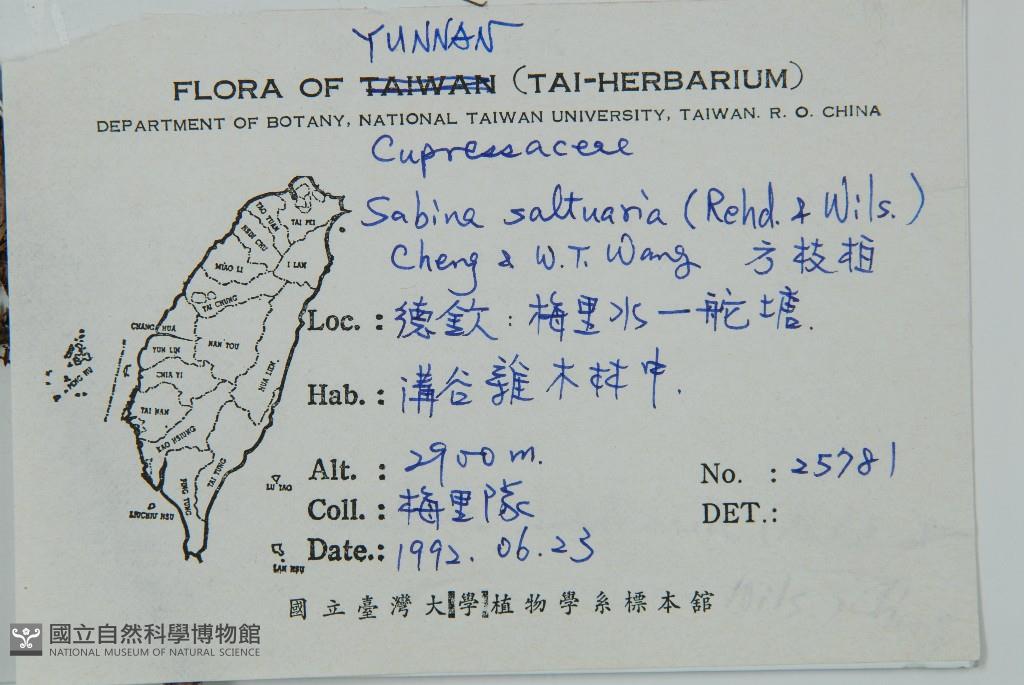 YUNNAN
FLORA OF TAIWAN (TAI-HERBARIUM)
DEPARTMENT OF BOTANY, NATIONAL TAIWAN UNIVERSITY, TAIWAN. R. O. CHINA
Cupressaceae
Sabina saltuaria (Rehd. & Wils.)
Cheng & W.T. Wang 方枝柏
TAI PEI
TAO YUAN
HSIN CHU
I LAN
MIAO LI
TAI CHUNG
CHANG HUA
NAN TOU
YUN LIN
HUA LIEN
CHIA YI
TAI NAN
KAO HSIUNG
TAI TUNG
PING TUNG
LU TAO
LIUCHIU HSU
LAN HSU
Loc. : 德欽：梅里水一舵塘.
Hab. : 溝谷雜木林中.
Alt. : 2900 m. No. : 25781
Coll. : 梅里隊 DET.:
Date.: 1992. 06. 23
國立臺灣大學植物學系標本館
國立自然科學博物館
NATIONAL MUSEUM OF NATURAL SCIENCE